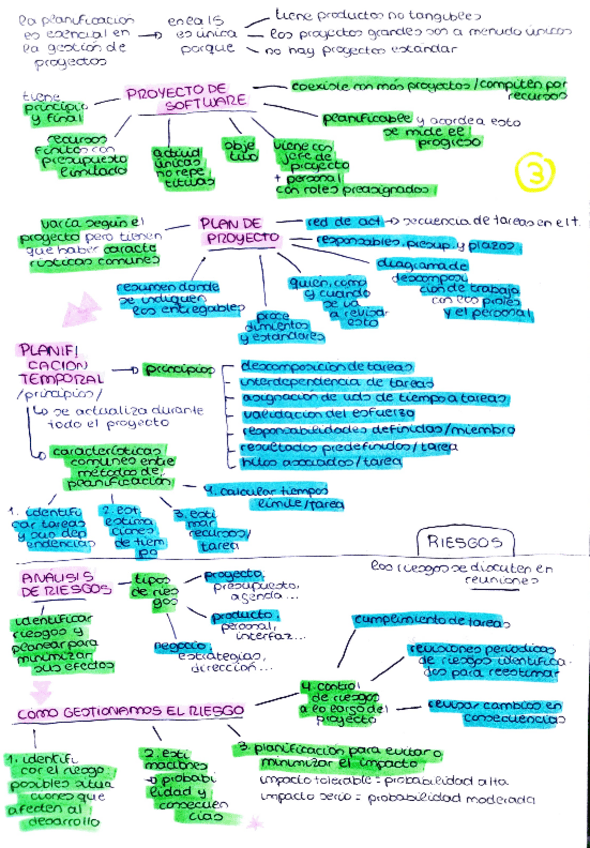 la planificación
es esencial en
la gestión de
proyectos
en ea IS
es única
porque
tiene productos no tangibles
los proyectos grandes son a menudo únicos
no hay proyectos estándar
PROYECTO DE
SOFTWARE
tiene
principio
y final
recursos
finitos con
presupuesto
limitado
actitud
únicas
no repe
titivas
obje
tivo
viene con
jefe de
proyecto
+ personal
con roles preasignados
coexiste con más proyectos/compiten por
recursos
planificable y acorde a esto
se mide el
progreso
3
PLAN DE
PROYECTO
varía según el
proyecto pero tienen
que haber caracte
rísticas comunes
red de act → secuencia de tareas en el t.
responsables, presup. y plazos
diagrama de
descomposi
ción de trabajo
con los roles
y el personal
quién, cómo
y cuándo
se va
a revisar
esto
proce
dimientos
y estándares
resumen donde
se indiquen
los entregables
PLANIFI
CACIÓN
TEMPORAL
/principios/
→ principios
descomposición de tareas
interdependencia de tareas
asignación de uds de tiempo a tareas
validación del esfuerzo
responsabilidades definidas/miembro
resultados predefinidos/tarea
hitos asociados/tarea
se actualiza durante
todo el proyecto
características
comunes entre
métodos de
planificación
1. identifi
car tareas
y sus dep
endencias
2. est.
estima
ciones
de tiem
po
3. esti
mar
recursos/
tarea
4. calcular tiempos
límite/tarea
RIESGOS
los riesgos se discuten en
reuniones
ANÁLISIS
DE RIESGOS
identificar
riesgos y
planear para
minimizar
sus efectos
tipos
de ries
gos
proyecto,
presupuesto,
agenda...
producto,
personal,
interfaz...
negocio,
estrategias,
dirección...
COMO GESTIONAMOS EL RIESGO
1. identifi
car el riesgo:
posibles situa
ciones que
afecten al
desarrollo
2. esti
maciones
→ probabi
lidad y
consecuen
cias
3. planificación para evitar o
minimizar el impacto
impacto tolerable = probabilidad alta
impacto serio = probabilidad moderada
4. control
de riesgos
a lo largo del
proyecto
cumplimiento de tareas
revisiones periódicas
de riesgos identifica
dos para reestimar
revisar cambios en
consecuencias